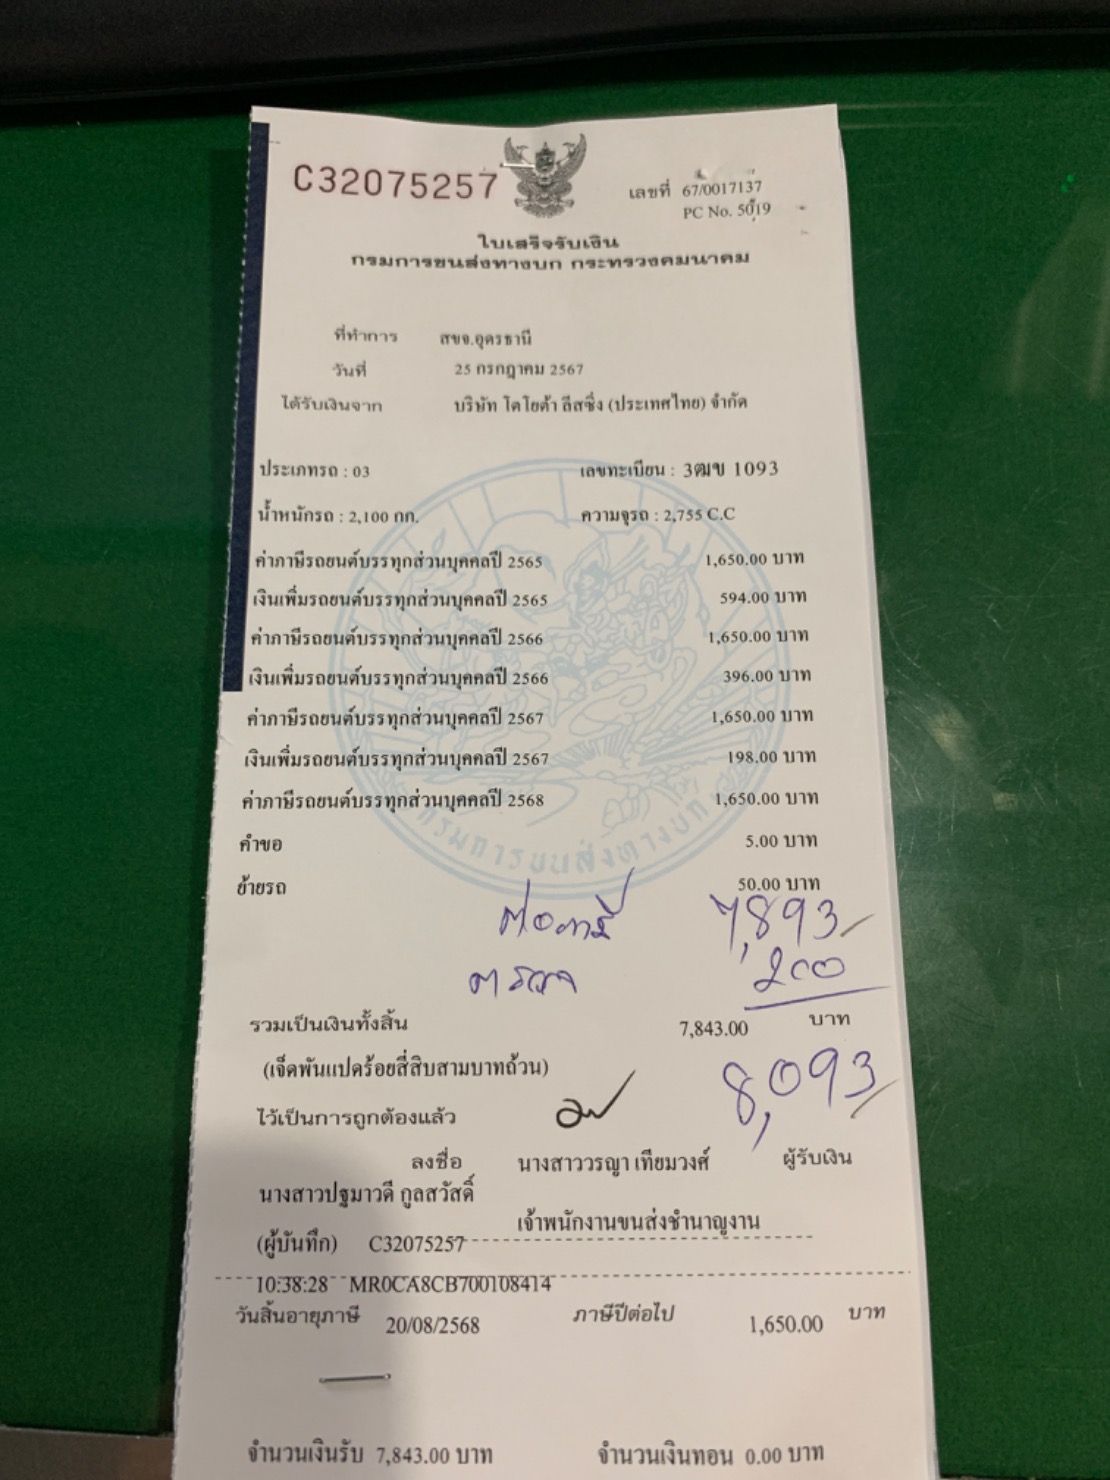 C32075257
เลขที่ 67/0017137
PC No. 5019
ใบเสร็จรับเงิน
กรมการขนส่งทางบก กระทรวงคมนาคม
ที่ทำการ สขจ.อุดรธานี
วันที่ 25 กรกฎาคม 2567
ได้รับเงินจาก บริษัท โตโยต้า ลีสซิ่ง (ประเทศไทย) จำกัด
ประเภทรถ : 03 เลขทะเบียน : 3ฒข 1093
น้ำหนักรถ : 2,100 กก. ความจุรถ : 2,755 C.C
ค่าภาษีรถยนต์บรรทุกส่วนบุคคลปี 2565 1,650.00 บาท
เงินเพิ่มรถยนต์บรรทุกส่วนบุคคลปี 2565 594.00 บาท
ค่าภาษีรถยนต์บรรทุกส่วนบุคคลปี 2566 1,650.00 บาท
เงินเพิ่มรถยนต์บรรทุกส่วนบุคคลปี 2566 396.00 บาท
ค่าภาษีรถยนต์บรรทุกส่วนบุคคลปี 2567 1,650.00 บาท
เงินเพิ่มรถยนต์บรรทุกส่วนบุคคลปี 2567 198.00 บาท
ค่าภาษีรถยนต์บรรทุกส่วนบุคคลปี 2568 1,650.00 บาท
กรมการขนส่งทางบก
คำขอ 5.00 บาท
ย้ายรถ 50.00 บาท
ต่อภาษี 7,893
ตรวจ 200
รวมเป็นเงินทั้งสิ้น 7,843.00 บาท
(เจ็ดพันแปดร้อยสี่สิบสามบาทถ้วน)
8,093
ไว้เป็นการถูกต้องแล้ว
ลงชื่อ นางสาววรญา เทียมวงศ์ ผู้รับเงิน
นางสาวปฐมาวดี กูลสวัสดิ์
เจ้าพนักงานขนส่งชำนาญงาน
(ผู้บันทึก) C32075257
10:38:28 MR0CA8CB700108414
วันสิ้นอายุภาษี 20/08/2568 ภาษีปีต่อไป 1,650.00 บาท
จำนวนเงินรับ 7,843.00 บาท จำนวนเงินทอน 0.00 บาท